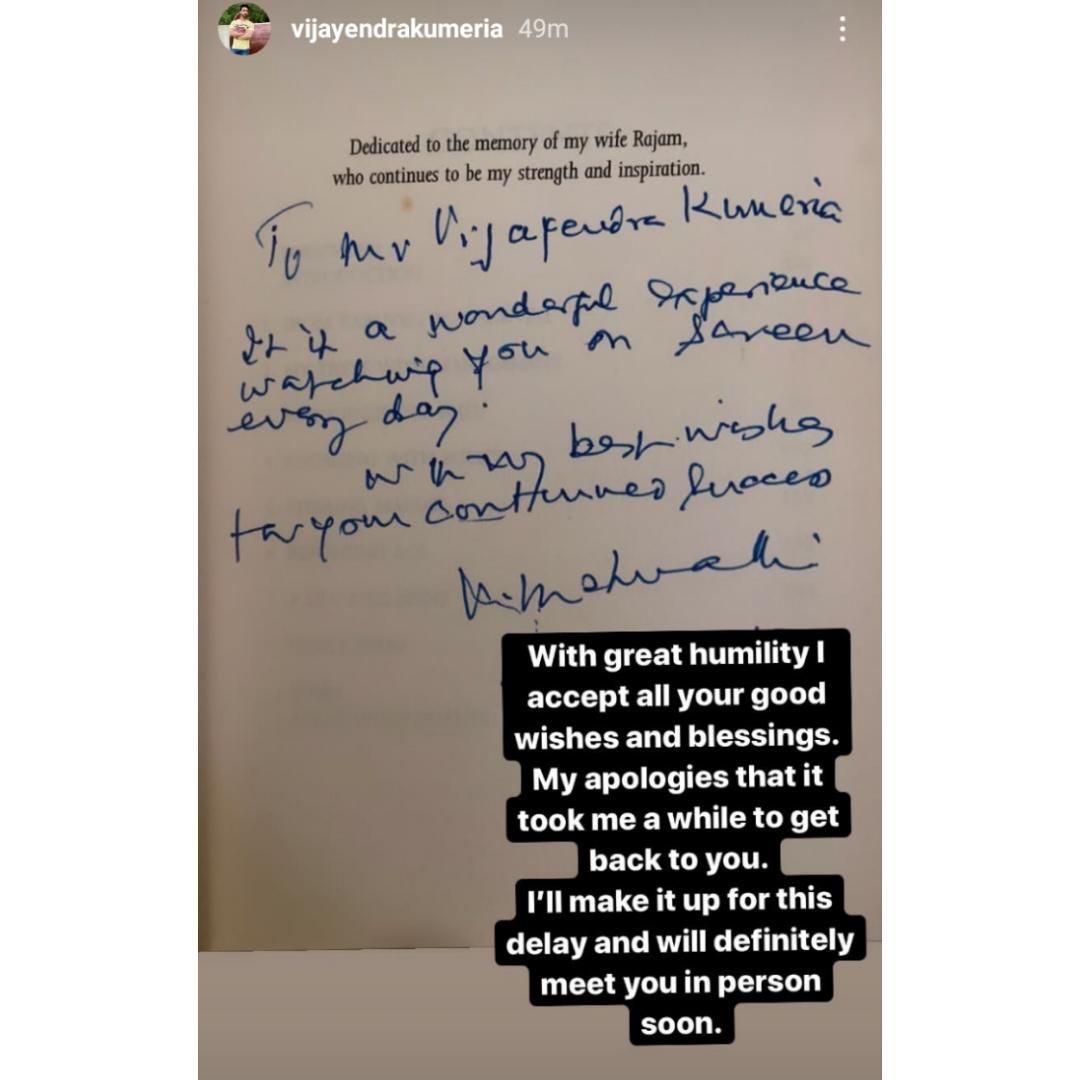 vijayendrakumeria 49m
Dedicated to the memory of my wife Rajam,
who continues to be my strength and inspiration.
To Mr Vijayendra Kumeria
It is a wonderful experience
watching you on Screen
every day.
with my best wishes
for your continued success
With great humility I
accept all your good
wishes and blessings.
My apologies that it
took me a while to get
back to you.
I'll make it up for this
delay and will definitely
meet you in person
soon.